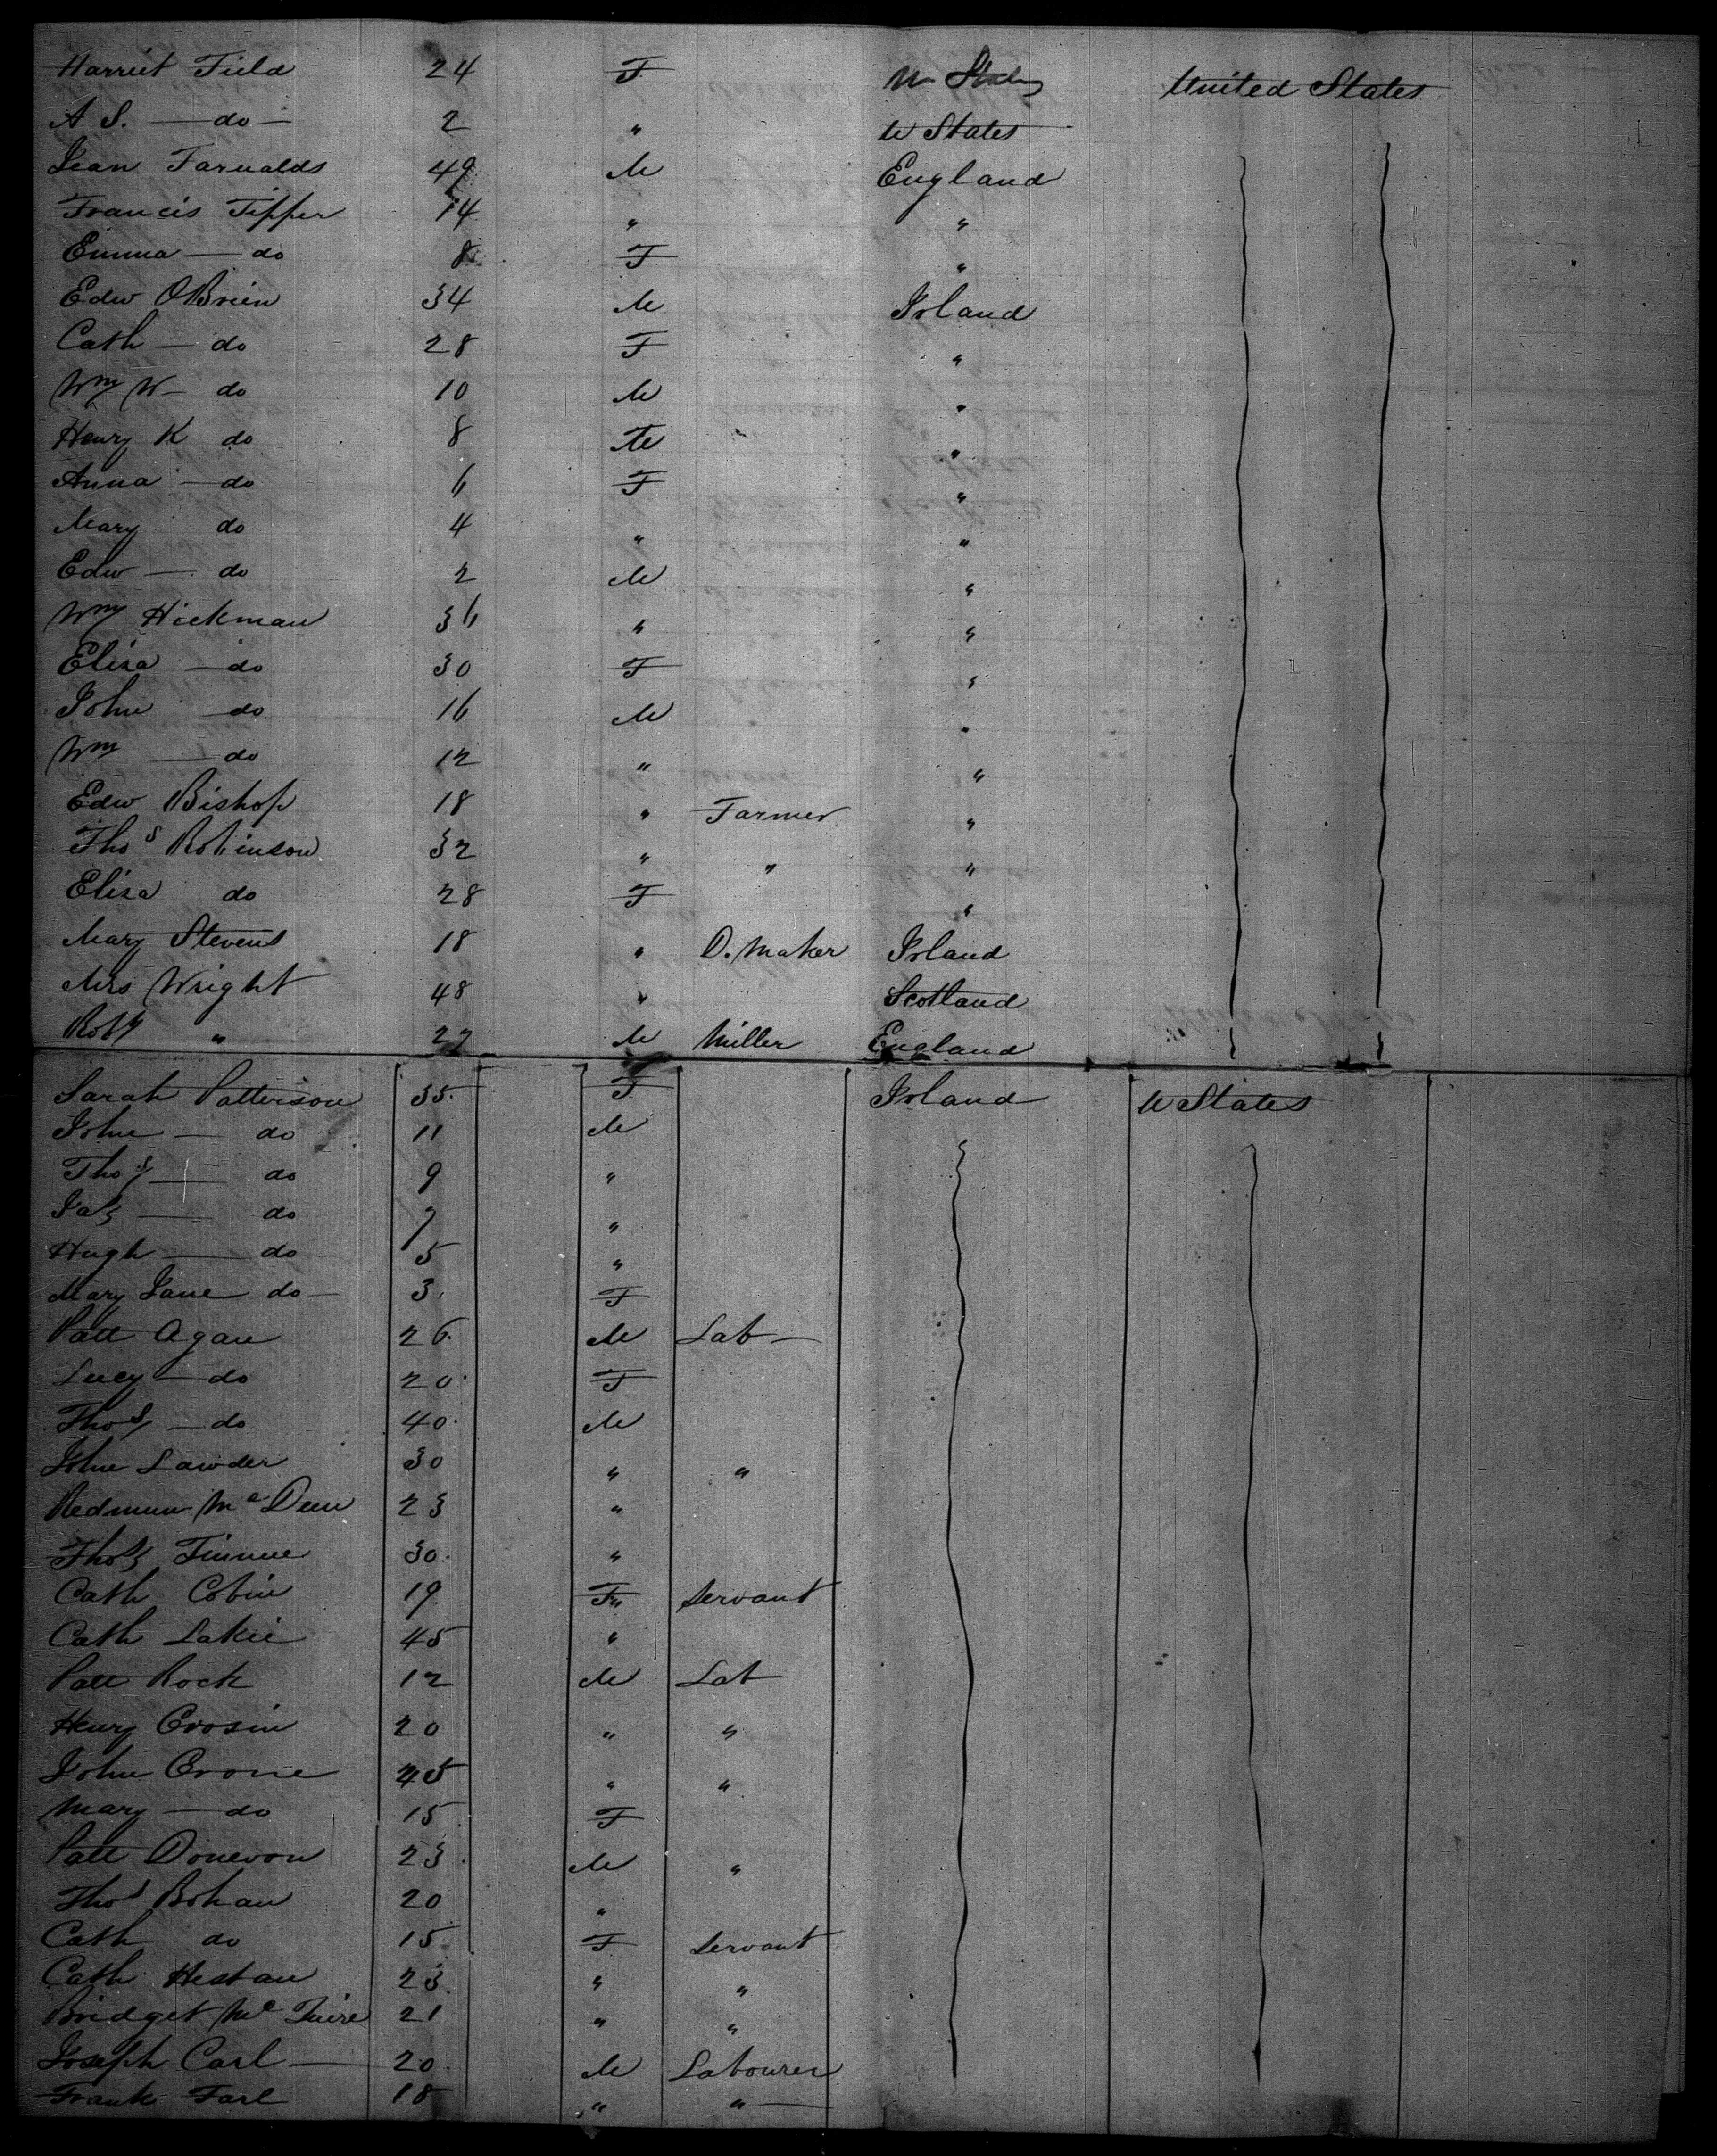 Harriet Field 24 F U States United States
A S. — do — 2 " U States
Jean Farnalds 49 M England
Francis Tipper 14 " "
Emma — do 8 F "
Edw OBrien 34 M Irland
Cath — do 28 F "
Wm W — do 10 M "
Henry K do 8 "
Anna — do 6 F "
Mary do 4 " "
Edw — do 2 M "
Wm Hickman 36 " "
Elisa — do 30 F "
John — do 16 M "
Wm — do 12 " "
Edw Bishop 18 " Farmer "
Thos Robinson 32 " " "
Elisa do 28 F "
Mary Stevens 18 " D. Maker Irland
Mrs Wright 48 " Scotland
Robt " 27 M Miller England
Sarah Patterson 35. F Irland U States
John — do 11 M
Thos — do 9 "
Jas — do 7 "
Hugh — do 5 "
Mary Jane do — 3. F
Patt Agan 26. M Lab —
Lucy — do 20. F
Thos — do 40. M
John Lawder 30 " "
Redmun Mc Deen 23 "
Thos Finnue 30. "
Cath Cobin 19 F" Servant
Cath Lakie 45 "
Patt Rock 12 M Lab
Henry Crosin 20 " "
John Crone 45 " "
Mary — do 15 F
Patt Donevon 23. M "
Thos Bohan 20 "
Cath do 15 F Servant
Cath Hestan 23. " "
Bridget Mc Guire 21 " "
Joseph Carl — 20. M Labourer
Frank Farl 18 " " —